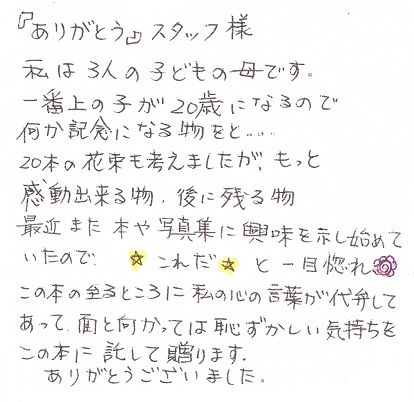 『ありがとう』スタッフ様
私は3人の子どもの母です。
一番上の子が20歳になるので
何か記念になる物をと・・・・
20本の花束も考えましたが、もっと
感動出来る物、後に残る物
最近また本や写真集に興味を示し始めて
いたので、 ☆ これだ ☆ と一目惚れ
この本の至るところに私の心の言葉が代弁して
あって、面と向かっては恥ずかしい気持ちを
この本に託して贈ります。
ありがとうございました。